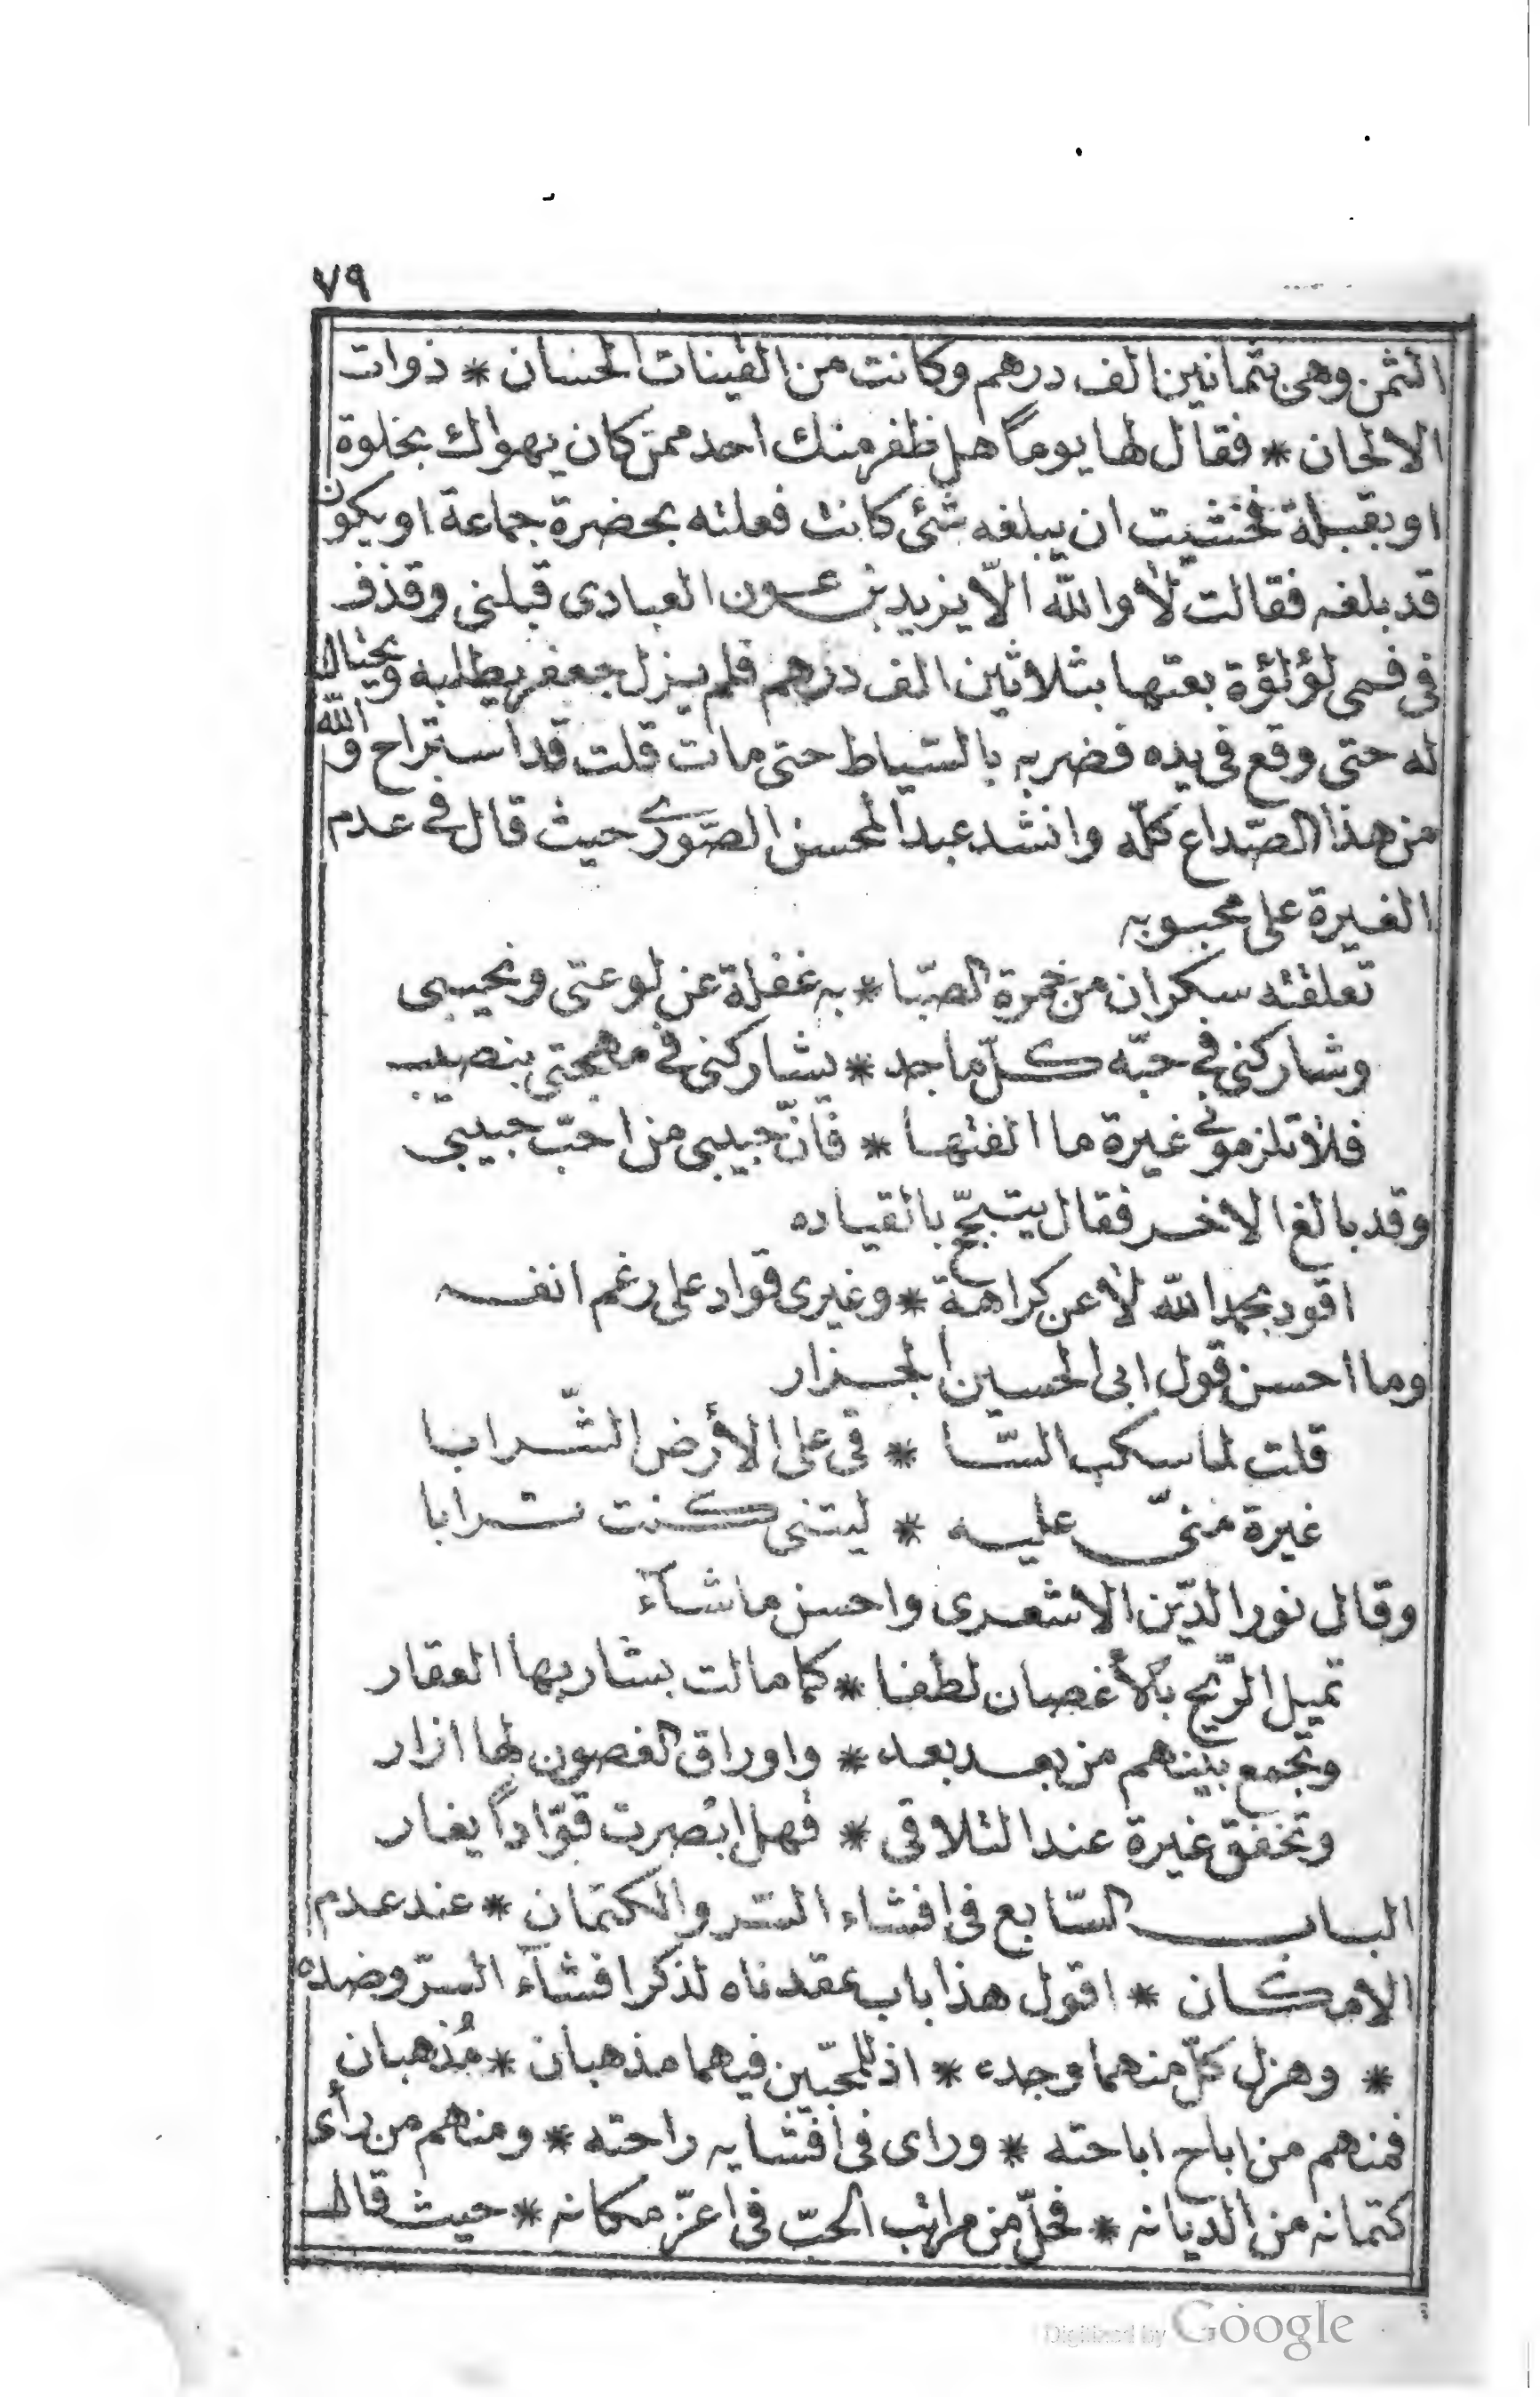 ٧٩
الثمن وهى بثمانين الف درهم وكانت من القينات الحسان * ذوات
الالحان * فقال لها يوماً هل ظفر منك احد ممن كان يهواك بخلوة
او بقبلة فخشيت ان يبلغه شئ كانت فعلته بحضرة جماعة او يكون
قد بلغه فقالت لا والله الّا يزيد بن عون العبادى قبلنى وقذف
فى فمى لؤلؤة بعتها بثلاثين الف درهم فلم يزل جعفر يطلبه ويحتال
له حتى وقع فى يده فضربه بالسّياط حتى مات قلت قد استراح والله
من هذا الصّداع كلّه وانشد عبد المحسن الصّورى حيث قال فى عدم
الغيرة على محبوبه
تعلقته سكران من خمرة الصّبا * به غفلة عن لوعتى ونحيبى
وشاركنى فى حبّه كلّ ماجد * يشاركنى فى مهجتى بنصيب
فلا تلزمونى غيرة ما الفتها * فانّ حبيبى من احبّ حبيبى
وقد بالغ الاخر فقال يتبجّح بالقياده
اقود بحمد الله لا عن كراهة * وغيرى قواد على رغم انفه
وما احسن قول ابى الحسين الجزار
قلت لما سكب السّا * قى على الأرض الشّرابا
غيرة منّى عليه * ليتنى كنت ترابا
وقال نور الدّين الاشعرى واحسن ما شآء
تميل الرّيح بالأغصان لطفا * كما مالت بشاربها العقار
وتجمع بينهم من بعد بعد * واوراق الغصون لها ازار
وتخفق غيرة عند التلاقى * فهل ابصرت قوّاداً يغار
الباب السّابع فى افشاء السّر والكتمان * عند عدم
الامكان * اقول هذا باب عقدناه لذكر افشآء السرّ وضده
* وهزل كلّ منهما وجده * اذ للمحبّين فيهما مذهبان * مُذهبان
فمنهم من اباح اباحته * وراى فى افشايه راحته * ومنهم من رأى
كتمانه من الديانه * فحلّ من مراتب الحبّ فى اعزّ مكانه * حيث قال
Digitized by Google